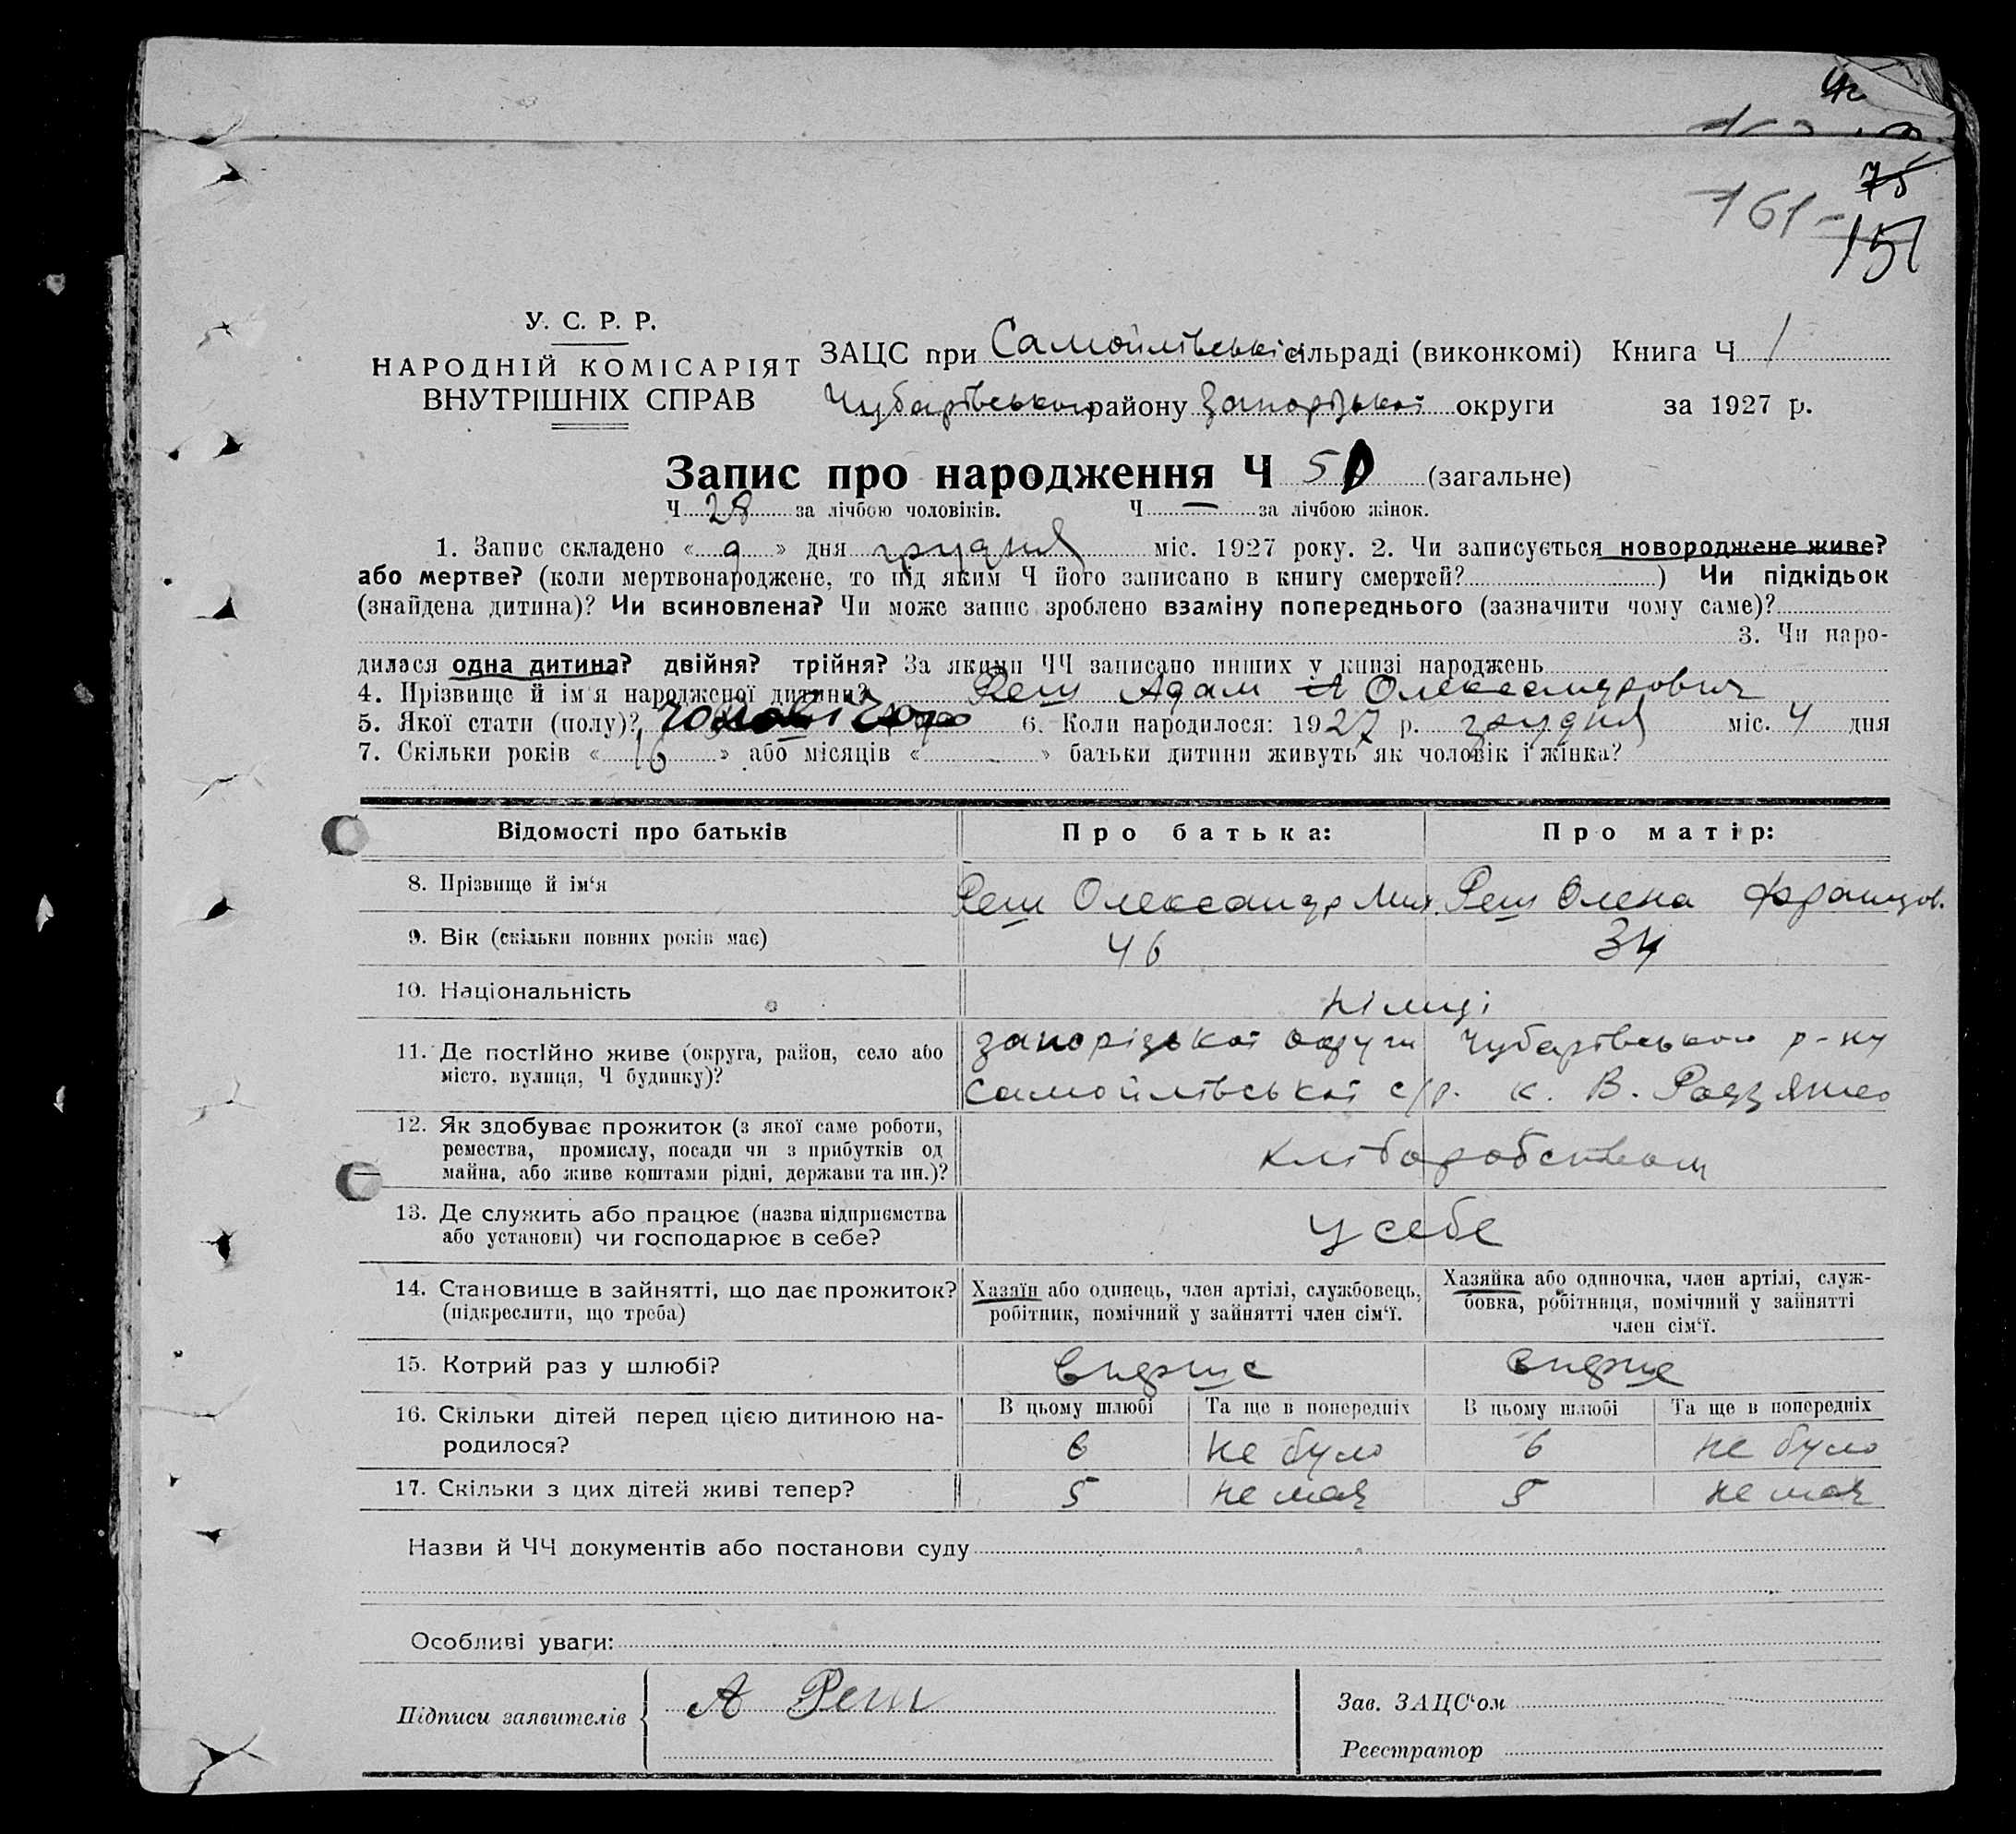 75
161-
151
У. С. Р. Р.
НАРОДНІЙ КОМІСАРІЯТ
ВНУТРІШНІХ СПРАВ
ЗАЦС при Самойлівські сільраді (виконкомі) Книга Ч 1
Чубарівського району Запорізької округи за 1927 р.
Запис про народження Ч 50 (загальне)
Ч 28 за лічбою чоловіків. Ч — за лічбою жінок.
1. Запис складено « 9 » дня грудня міс. 1927 року. 2. Чи записується новороджене живе?
або мертве? (коли мертвонароджене, то під яким Ч його записано в книгу смертей? ) Чи підкідьок
(знайдена дитина)? Чи всиновлена? Чи може запис зроблено взаміну попереднього (зазначити чому саме)?
3. Чи наро-
дилася одна дитина? двійня? трійня? За якими ЧЧ записано инших у книзі народжень
4. Прізвище й ім'я народженої дитини? Реш Адам А Олександрович
5. Якої стати (полу)? чоловічого 6. Коли народилося: 1927 р. грудня міс. 4 дня
7. Скільки років « 16 » або місяців « » батьки дитини живуть як чоловік і жінка?
Відомості про батьків Про батька: Про матір:
8. Прізвище й ім‘я Реш Олександр Мих. Реш Олена Францов.
9. Вік (скільки повних років має) 46 34
10. Національність німці
11. Де постійно живе (округа, район, село або запорізької округи Чубарівського р-ну
місто, вулиця, Ч будинку)? Самойлівської с/р. к. В. Родзянко
12. Як здобуває прожиток (з якої саме роботи,
ремества, промислу, посади чи з прибутків од хліборобством
майна, або живе коштами рідні, держави та ин.)?
13. Де служить або працює (назва підприємства
або установи) чи господарює в себе? у себе
14. Становище в зайнятті, що дає прожиток? Хазяїн або одинець, член артілі, службовець, Хазяйка або одиночка, член артілі, служ-
(підкреслити, що треба) робітник, помічний у зайнятті член сім‘ї. бовка, робітниця, помічний у зайнятті
член сім‘ї.
15. Котрий раз у шлюбі? вперше вперше
16. Скільки дітей перед цією дитиною на- В цьому шлюбі Та ще в попередніх В цьому шлюбі Та ще в попередніх
родилося? 6 не було 6 не було
17. Скільки з цих дітей живі тепер? 5 не має 5 не має
Назви й ЧЧ документів або постанови суду
Особливі уваги:
Підписи заявителів А Реш Зав. ЗАЦС‘ом
Реєстратор